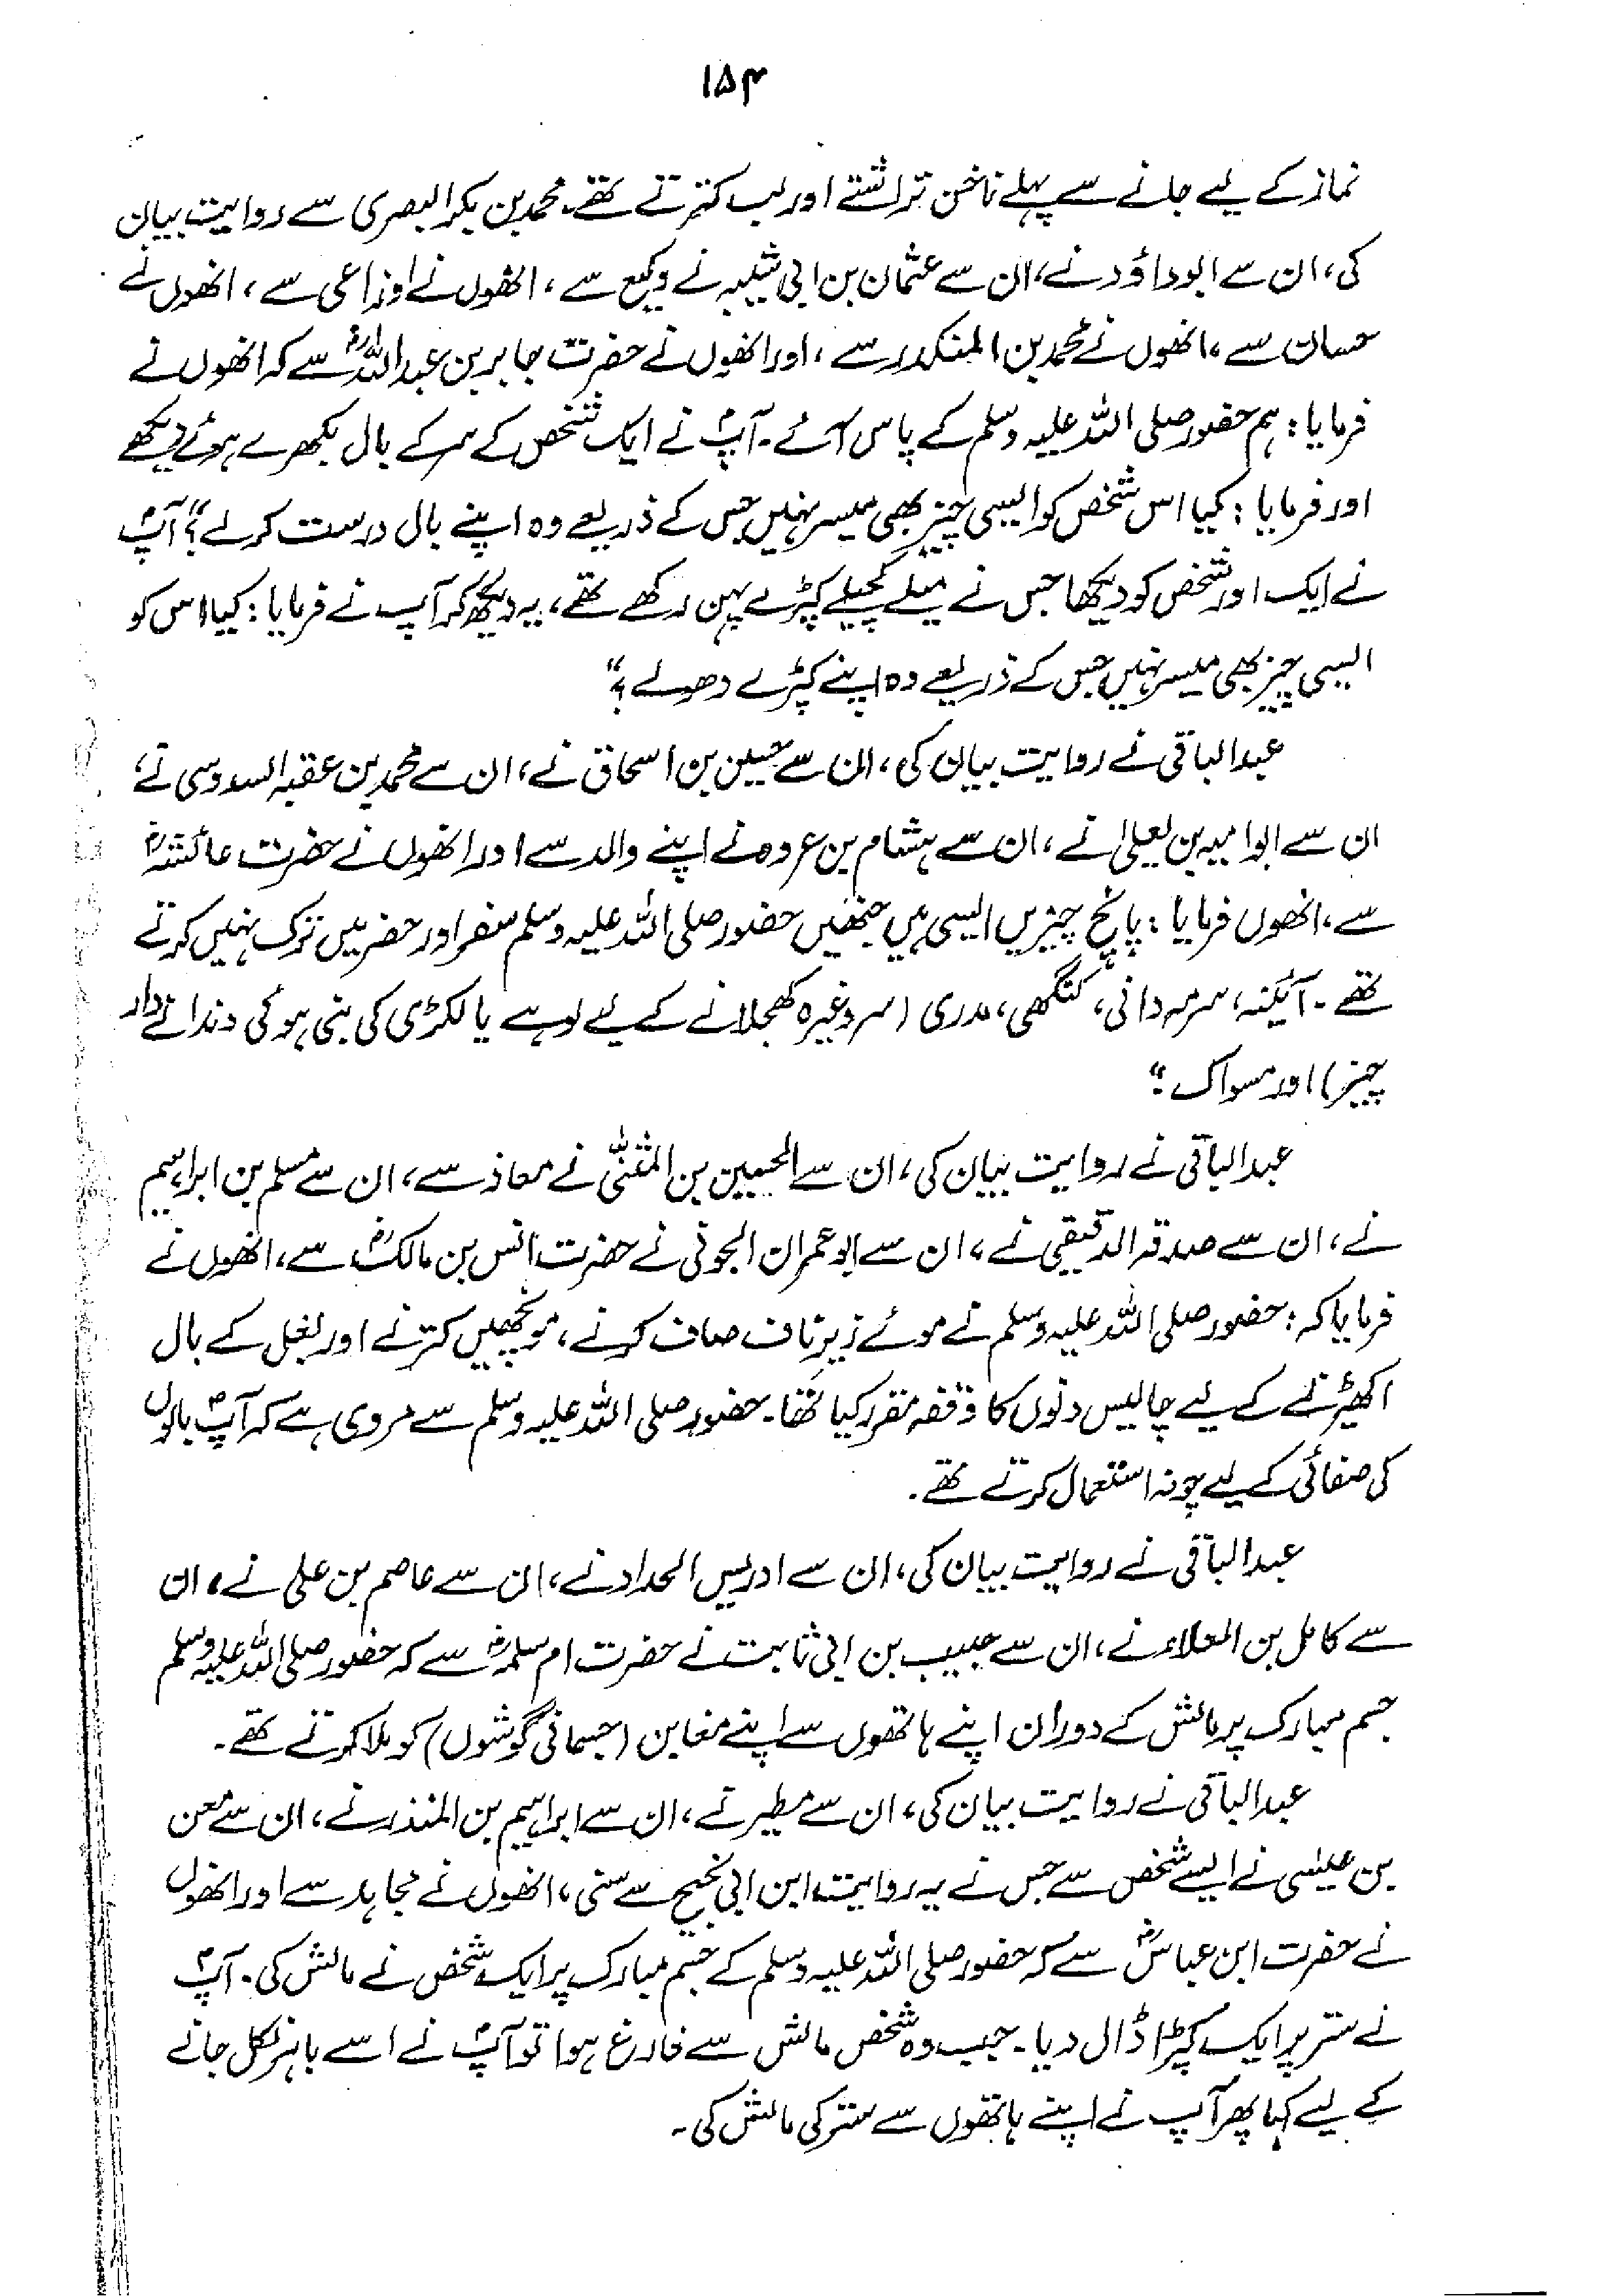 ۱۵۴
نماز کے لیے جانے سے پہلے ناخن تراشتے اور لب کترتے تھے۔ محمد بن بکر البصری سے روایت بیان
کی، ان سے ابوداؤد نے، ان سے عثمان بن ابی شیبہ نے وکیع سے، انھوں نے اوزاعی سے، انھوں نے
حسان سے، انھوں نے محمد بن المنکدر سے، اور انھوں نے حضرت جابر بن عبداللہؓ سے کہ انھوں نے
فرمایا: ہم حضور صلی اللہ علیہ وسلم کے پاس آئے۔ آپؐ نے ایک شخص کے سر کے بال بکھرے ہوئے دیکھے
اور فرمایا: کیا اس شخص کو ایسی چیز بھی میسر نہیں جس کے ذریعے وہ اپنے بال درست کر لے؟“ آپؐ
نے ایک اور شخص کو دیکھا جس نے میلے کچیلے کپڑے پہن رکھے تھے، یہ دیکھ کر آپ نے فرمایا: کیا اس کو
ایسی چیز بھی میسر نہیں جس کے ذریعے وہ اپنے کپڑے دھولے؟“
عبدالباقی نے روایت بیان کی، ان سے حسین بن اسحاق نے، ان سے محمد بن عقبہ السدوسی نے،
ان سے ابوامیہ بن یعلیٰ نے، ان سے ہشام بن عروہ نے اپنے والد سے اور انھوں نے حضرت عائشہؓ
سے، انھوں فرمایا: پانچ چیزیں ایسی ہیں جنھیں حضور صلی اللہ علیہ وسلم سفر اور حضر میں ترک نہیں کرتے
تھے۔ آئینہ، سرمہ دانی، کنگھی، مدری (سر وغیرہ کھجلانے کے لیے لوہے یا لکڑی کی بنی ہوئی دندانے دار
چیز) اور مسواک۔“
عبدالباقی نے روایت بیان کی، ان سے الحسین بن المثنیٰ نے معاذ سے، ان سے مسلم بن ابراہیم
نے، ان سے صدقہ الدقیقی نے، ان سے ابو عمران الجونی نے حضرت انس بن مالکؓ سے، انھوں نے
فرمایا کہ: حضور صلی اللہ علیہ وسلم نے موئے زیرناف صاف کرنے، مونچھیں کترنے اور بغل کے بال
اکھیڑنے کے لیے چالیس دنوں کا وقفہ مقرر کیا تھا۔ حضور صلی اللہ علیہ وسلم سے مروی ہے کہ آپؐ بالوں
کی صفائی کے لیے چونہ استعمال کرتے تھے۔
عبدالباقی نے روایت بیان کی، ان سے ادریس الحداد نے، ان سے عاصم بن علی نے، ان
سے کامل بن العلاء نے، ان سے حبیب بن ابی ثابت نے حضرت ام سلمہؓ سے کہ حضور صلی اللہ علیہ وسلم
جسم مبارک پر مالش کے دوران اپنے ہاتھوں سے اپنے مغابن (جسمانی گوشوں) کو ملا کرتے تھے۔
عبدالباقی نے روایت بیان کی، ان سے مطیر نے، ان سے ابراہیم بن المنذر نے، ان سے معن
بن عیسیٰ نے ایسے شخص سے جس نے یہ روایت ابن ابی نجیح سے سنی، انھوں نے مجاہد سے اور انھوں
نے حضرت ابن عباسؓ سے کہ حضور صلی اللہ علیہ وسلم کے جسم مبارک پر ایک شخص نے مالش کی۔ آپؐ
نے ستر پر ایک کپڑا ڈال دیا۔ جب وہ شخص مالش سے فارغ ہوا تو آپؐ نے اسے باہر نکل جانے
کے لیے کہا پھر آپ نے اپنے ہاتھوں سے ستر کی مالش کی۔